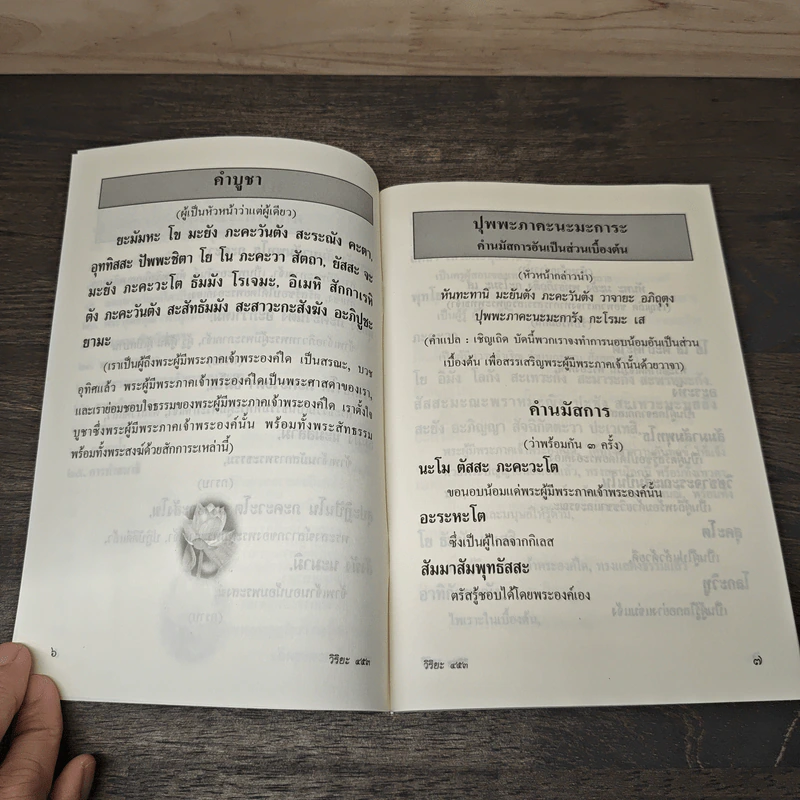 คำบูชา
(ผู้เป็นหัวหน้าว่าแต่ผู้เดียว)
ยะมัมหะ โข มะยัง ภะคะวันตัง สะระณัง คะตา,
อุททิสสะ ปัพพะชิตา โย โน ภะคะวา สัตถา, ยัสสะ จะ
มะยัง ภะคะวะโต ธัมมัง โรเจมะ, อิเมหิ สักกาเรหิ
ตัง ภะคะวันตัง สะสัทธัมมัง สะสาวะกะสังฆัง อะภิปูชะ
ยามะ
(เราเป็นผู้ถึงพระผู้มีพระภาคเจ้าพระองค์ใด เป็นสรณะ, บวช
อุทิศแล้ว พระผู้มีพระภาคเจ้าพระองค์ใดเป็นพระศาสดาของเรา,
และเราย่อมชอบใจธรรมของพระผู้มีพระภาคเจ้าพระองค์ใด เราตั้งใจ
บูชาซึ่งพระผู้มีพระภาคเจ้าพระองค์นั้น พร้อมทั้งพระสัทธรรม
พร้อมทั้งพระสงฆ์ด้วยสักการะเหล่านี้)
๖
วิริยะ ๔๕๓
ปุพพะภาคะนะมะการะ
คำนมัสการอันเป็นส่วนเบื้องต้น
(หัวหน้ากล่าวนำ)
หันทะทานิ มะยันตัง ภะคะวันตัง วาจายะ อภิถุตุง
ปุพพะภาคะนะมะการัง กะโรมะ เส
(คำแปล : เชิญเถิด บัดนี้พวกเราจงทำการนอบน้อมอันเป็นส่วน
เบื้องต้น เพื่อสรรเสริญพระผู้มีพระภาคเจ้านั้นด้วยวาจา)
คำนมัสการ
(ว่าพร้อมกัน ๓ ครั้ง)
นะโม ตัสสะ ภะคะวะโต
ขอนอบน้อมแด่พระผู้มีพระภาคเจ้าพระองค์นั้น
อะระหะโต
ซึ่งเป็นผู้ไกลจากกิเลส
สัมมาสัมพุทธัสสะ
ตรัสรู้ชอบได้โดยพระองค์เอง
วิริยะ ๔๕๓
๗